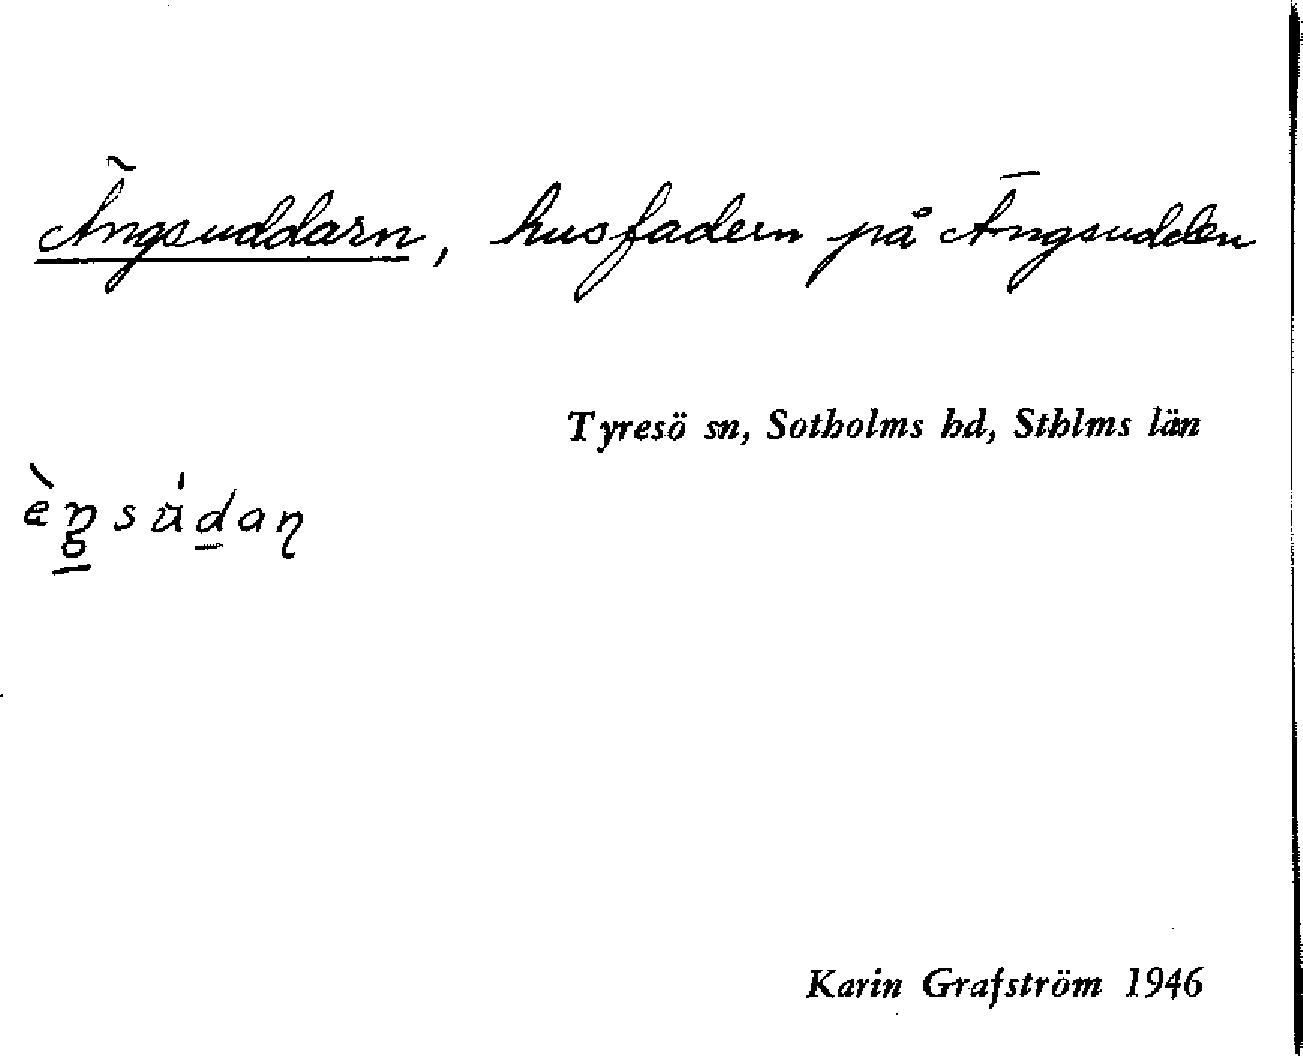 Ängsuddarn, husfadern på Ängsudden
Tyresö sn, Sotholms hd, Sthlms län
Karin Grafström 1946